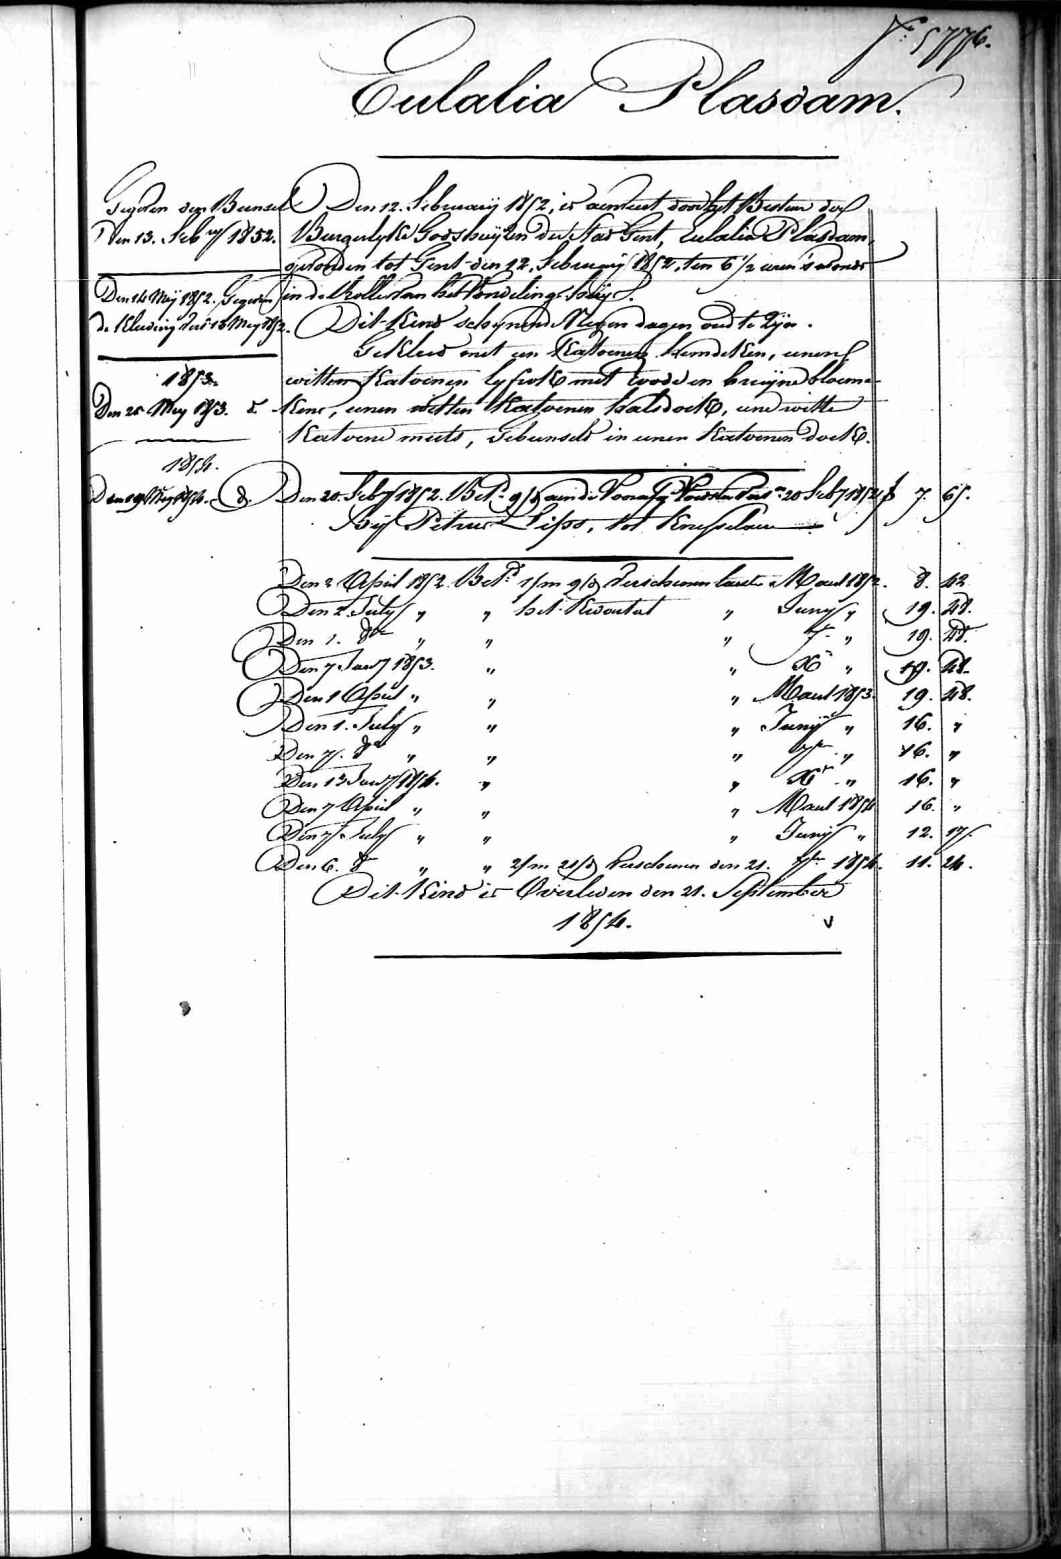 N.° 5776.
Eulalia Plasdam.
Gegeven den Bunsel
Den 13. Feb.ry 1852.
Den 14 Mey 1852. Gegeven
de Kleeding
1853.
Den 25 Mey 1853. d°
1854.
Den 19 Mey 1854. d°
Den 12. February 1852, is aenveert door het Bestier der
Burgerlyke Godshuyzen der Stad Gent, Eulalia Plasdam,
gevonden tot Gent den 12. February 1852, ten 6 1/2 uren 's avonds
in de Rolle van het Vondelinge huys.
Dit Kind schynende Negen dagen oud te Zyn.
Gekleed met een Katoenen hemdeken, eenen
witten Katoenen lyfrok met roode en bruyne bloeme-
kens, eenen witten Katoenen halsdoek, eene witte
Katoene muts, gebunseld in eenen Katoenen doek.
Den 20. Feb.y 1852. Bet.d 9/d aen de 20 Feb.y 1852 f 7. 65.
bij Petrus Lips, tot Knesselaere
Den 2 April 1852. Bet.d 1/m 9/d verschenen laeste Maert 1852. 8. 42
Den 2. July " " het Kwartael " Juny " 19. 48.
Den 1. 8.er " " " 7.er " 19. 48.
Den 7 Jan.y 1853. " " X.er " 19. 48.
Den 1 April " " " Maert 1853. 19. 48.
Den 1. July " " " Juny " 16. "
Den 7. 8.er " " " 7.er " 16. "
Den 13 Jan.y 1854. " " X.er " 16. "
Den 7 April " " " Maert 1854 16. "
Den 7. July " " " Juny " 12. 17.
Den 6. 8.er " " 2/m 21/d verschenen den 21. 7.er 1854. 11. 24.
Dit Kind is Overleden den 21. September
1854. v